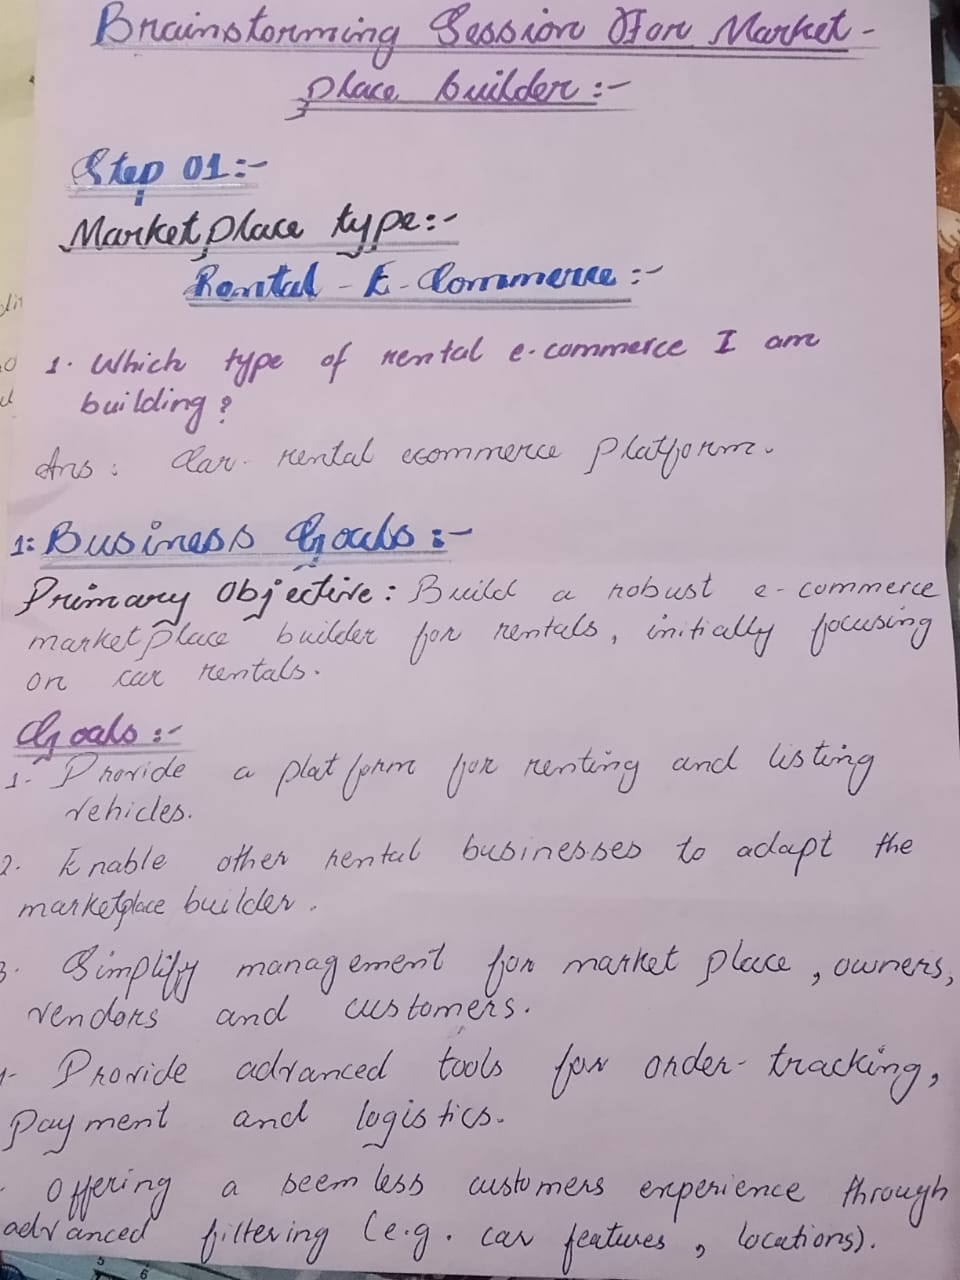 Brainstorming Session For Market-
place builder:-
Step 01:-
Marketplace type:-
Rental - E-Commerce:-
1. Which type of rental e-commerce I am
building?
Ans: Car rental ecommerce Platform.
1: Business Goals:-
Primary Objective: Build a robust e-commerce
marketplace builder for rentals, initially focusing
on car rentals.
Goals:-
1- Provide a platform for renting and listing
vehicles.
2. Enable other rental businesses to adapt the
marketplace builder.
3. Simplify management for market place, owners,
vendors and customers.
- Provide advanced tools for order-tracking,
Payment and logistics.
- Offering a seemless customers experience through
advanced filtering (e.g. car features, locations).
5 6